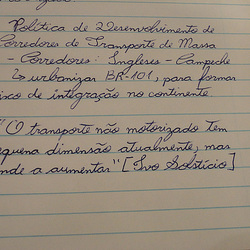 Política de Desenvolvimento de
Corredores de Transporte de Massa
- Corredores: Ingleses - Campeche
↳ urbanizar BR-101, para formar
ixo de integração no continente
"O transporte não motorizado tem
equena dimensão atualmente, mas
nde a aumentar" [Ivo Solstício]